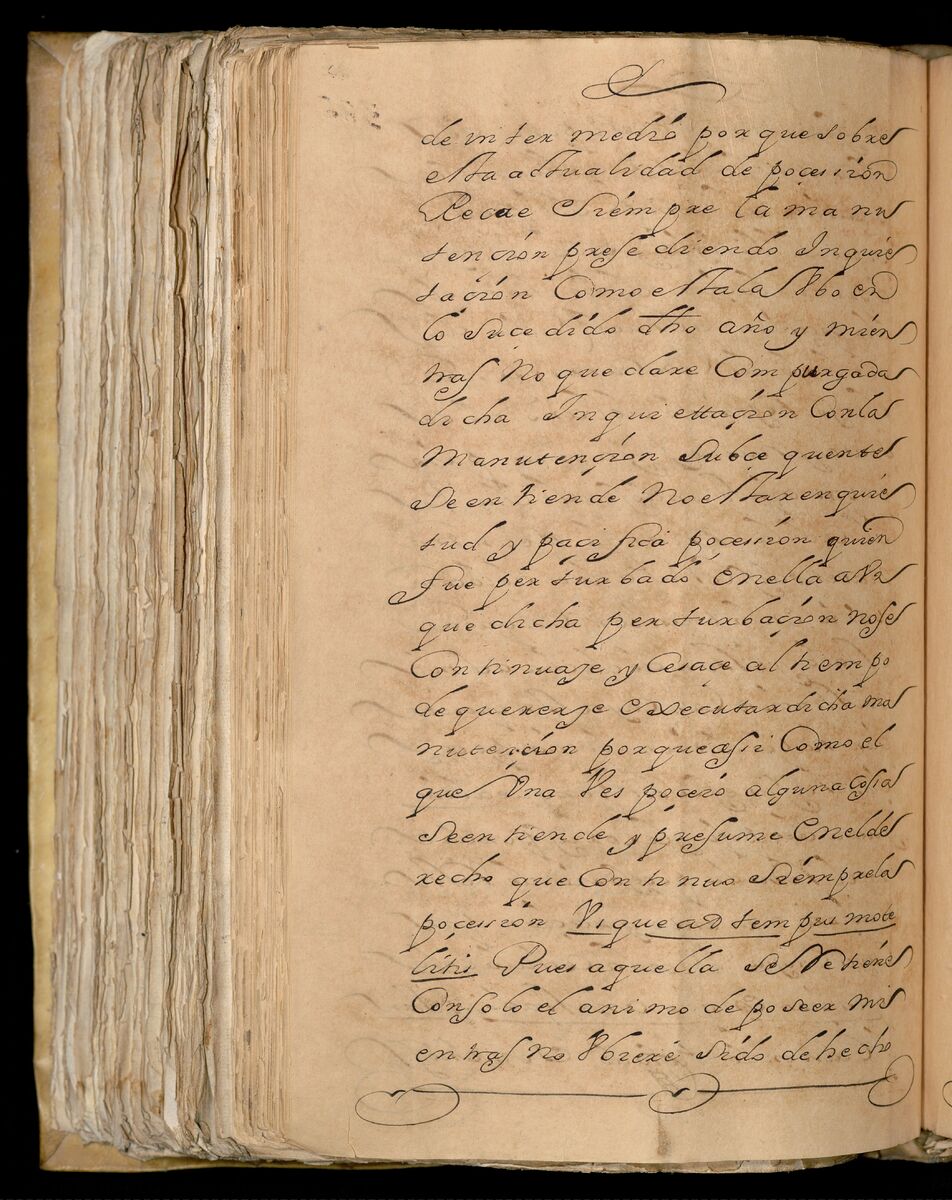 de inter medio por que sobre
esta actualidad de pocesión
Recae Siempre la manu
tención presediendo Inquie
tación Como esta la Vbo en
lo sucedido dho año y mien
tras No quedare Compurgada
dicha Inquiettación Con la
Manutención Subcequente
Se entiende No estar en quie
tud y pacifica pocesión quien
fue perturbado en ella aVn
que dicha perturbación no se
Continuase y Cesace al tiempo
de quererse executar dicha ma
nutención porque assi Como el
que Vna Ves poceió alguna Cosa
Se entiende y presume en el de
recho que Continuo Siempre la
pocessión Vsque ad tempus mote
litis Pues aquella se Retiene
Con solo el animo de poseer mi
entras no Vbiere sido de hecho